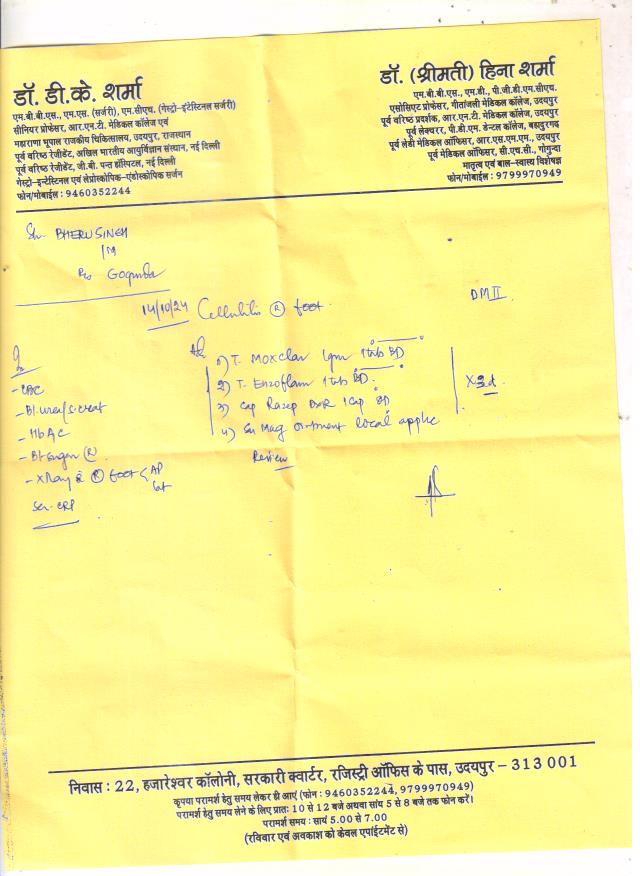 डॉ. डी.के. शर्मा
एम.बी.बी.एस., एम.एस. (सर्जरी), एम.सीएच. (गेस्ट्रो-इंटेस्टिनल सर्जरी)
सीनियर प्रोफेसर, आर.एन.टी. मेडिकल कॉलेज एवं
महाराणा भूपाल राजकीय चिकित्सालय, उदयपुर, राजस्थान
पूर्व वरिष्ठ रेजीडेंट, अखिल भारतीय आयुर्विज्ञान संस्थान, नई दिल्ली
पूर्व वरिष्ठ रेजीडेंट, जी.बी. पन्त हॉस्पिटल, नई दिल्ली
गेस्ट्रो-इन्टेस्टिनल एवं लेप्रोस्कोपिक-एंडोस्कोपिक सर्जन
फोन/मोबाईल : 9460352244
डॉ. (श्रीमती) हिना शर्मा
एम.बी.बी.एस., एम.डी., पी.जी.डी.एम.सीएच.
एसोसिएट प्रोफेसर, गीतांजली मेडिकल कॉलेज, उदयपुर
पूर्व वरिष्ठ प्रदर्शक, आर.एन.टी. मेडिकल कॉलेज, उदयपुर
पूर्व लेक्चरर, पी.डी.एम. डेन्टल कॉलेज, बहादुरगढ़
पूर्व लेडी मेडिकल ऑफिसर, आर.एस.एम.एम., उदयपुर
पूर्व मेडिकल ऑफिसर, सी.एच.सी., गोगुन्दा
मातृत्व एवं बाल-स्वास्थ्य विशेषज्ञ
फोन/मोबाईल : 9799970949
BHERU SINGH
/M
R/o Gogunda
14/10/24 Cellulitis (R) foot
DM II
1) T. Moxclav 1gm 1 tab BD
2) T. Enzoflam 1 tab BD
3) Cap Razep DSR 1 cap BD
4) Mag ointment local applic
X 3d
Review
- CBC
- Bl. urea/S. creat
- HbA1C
- Bl sugar (R)
- X Ray (R) foot < AP
Lat
Ser. CRP
निवास : 22, हजारेश्वर कॉलोनी, सरकारी क्वार्टर, रजिस्ट्री ऑफिस के पास, उदयपुर – 313 001
कृपया परामर्श हेतु समय लेकर ही आएं (फोन : 9460352244, 9799970949)
परामर्श हेतु समय लेने के लिए प्रातः 10 से 12 बजे अथवा सांय 5 से 8 बजे तक फोन करें।
परामर्श समय : सायं 5.00 से 7.00
(रविवार एवं अवकाश को केवल एपाईंटमेंट से)